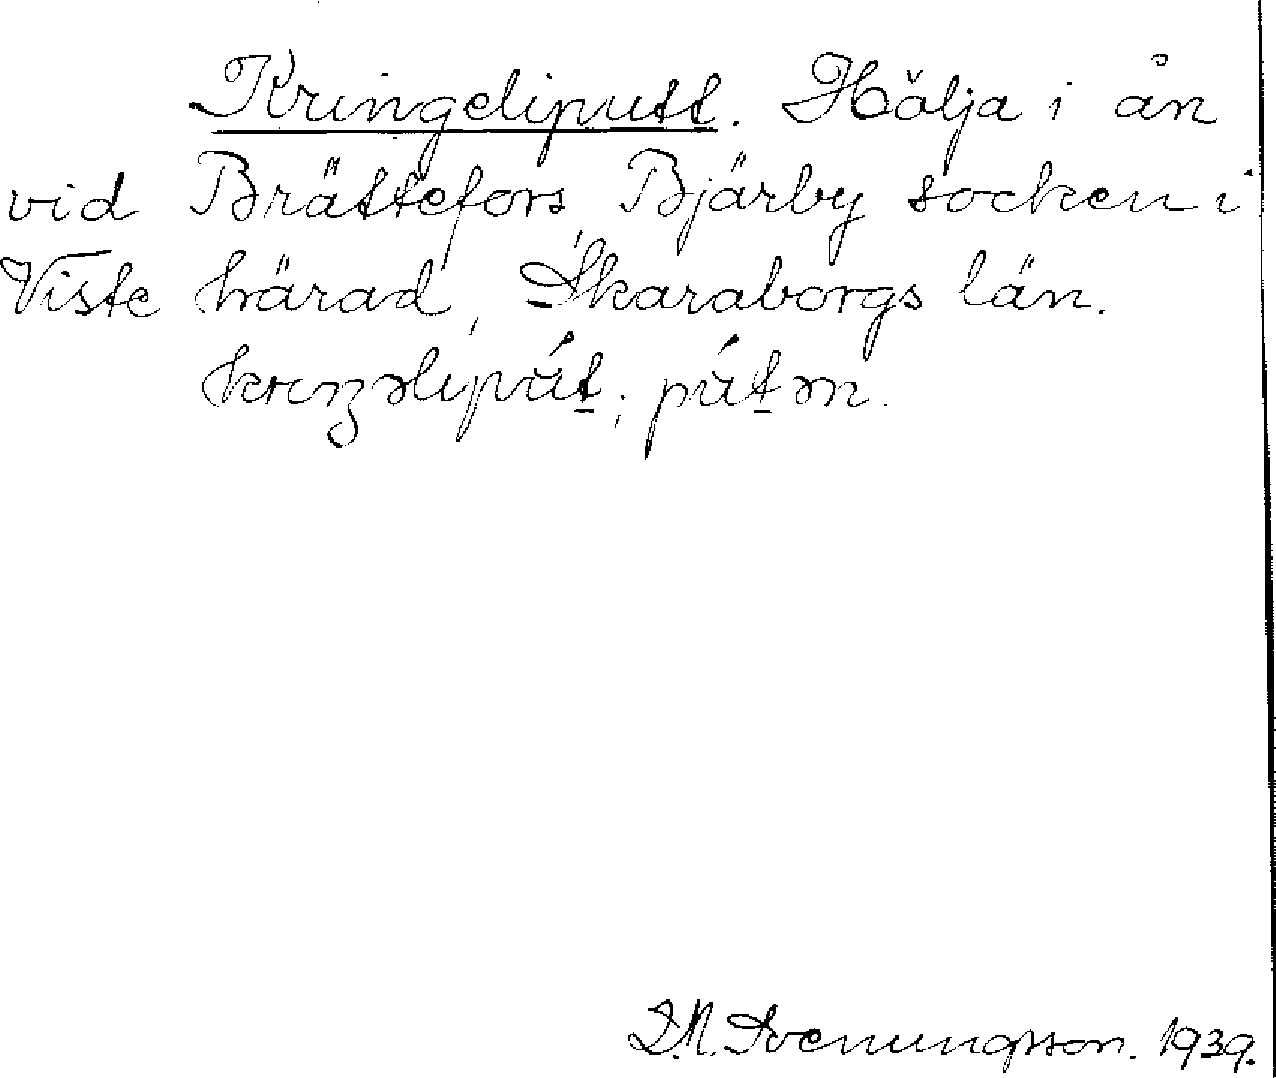 Kringeliputt. Hölja i ån
vid Brättefors, Bjärby socken i
Viste härad, Skaraborgs län.
krıŋəlıpút; pútən.
D.N. Svenungsson. 1939.